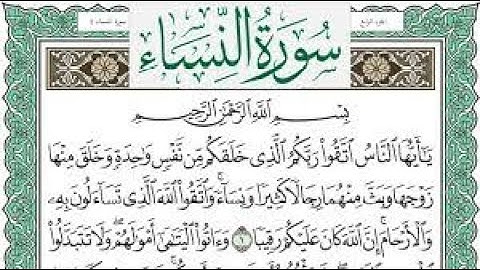 سورة النساء
الجزء الرابع
سُورَةُ النِّسَاءِ
بِسْمِ اللَّهِ الرَّحْمَٰنِ الرَّحِيمِ
يَٰٓأَيُّهَا ٱلنَّاسُ ٱتَّقُوا۟ رَبَّكُمُ ٱلَّذِى خَلَقَكُم مِّن نَّفْسٍ وَٰحِدَةٍ وَخَلَقَ مِنْهَا
زَوْجَهَا وَبَثَّ مِنْهُمَا رِجَالًا كَثِيرًا وَنِسَآءً ۚ وَٱتَّقُوا۟ ٱللَّهَ ٱلَّذِى تَسَآءَلُونَ بِهِۦ
وَٱلْأَرْحَامَ ۚ إِنَّ ٱللَّهَ كَانَ عَلَيْكُمْ رَقِيبًا ١ وَءَاتُوا۟ ٱلْيَتَٰمَىٰٓ أَمْوَٰلَهُمْ ۖ وَلَا تَتَبَدَّلُوا۟